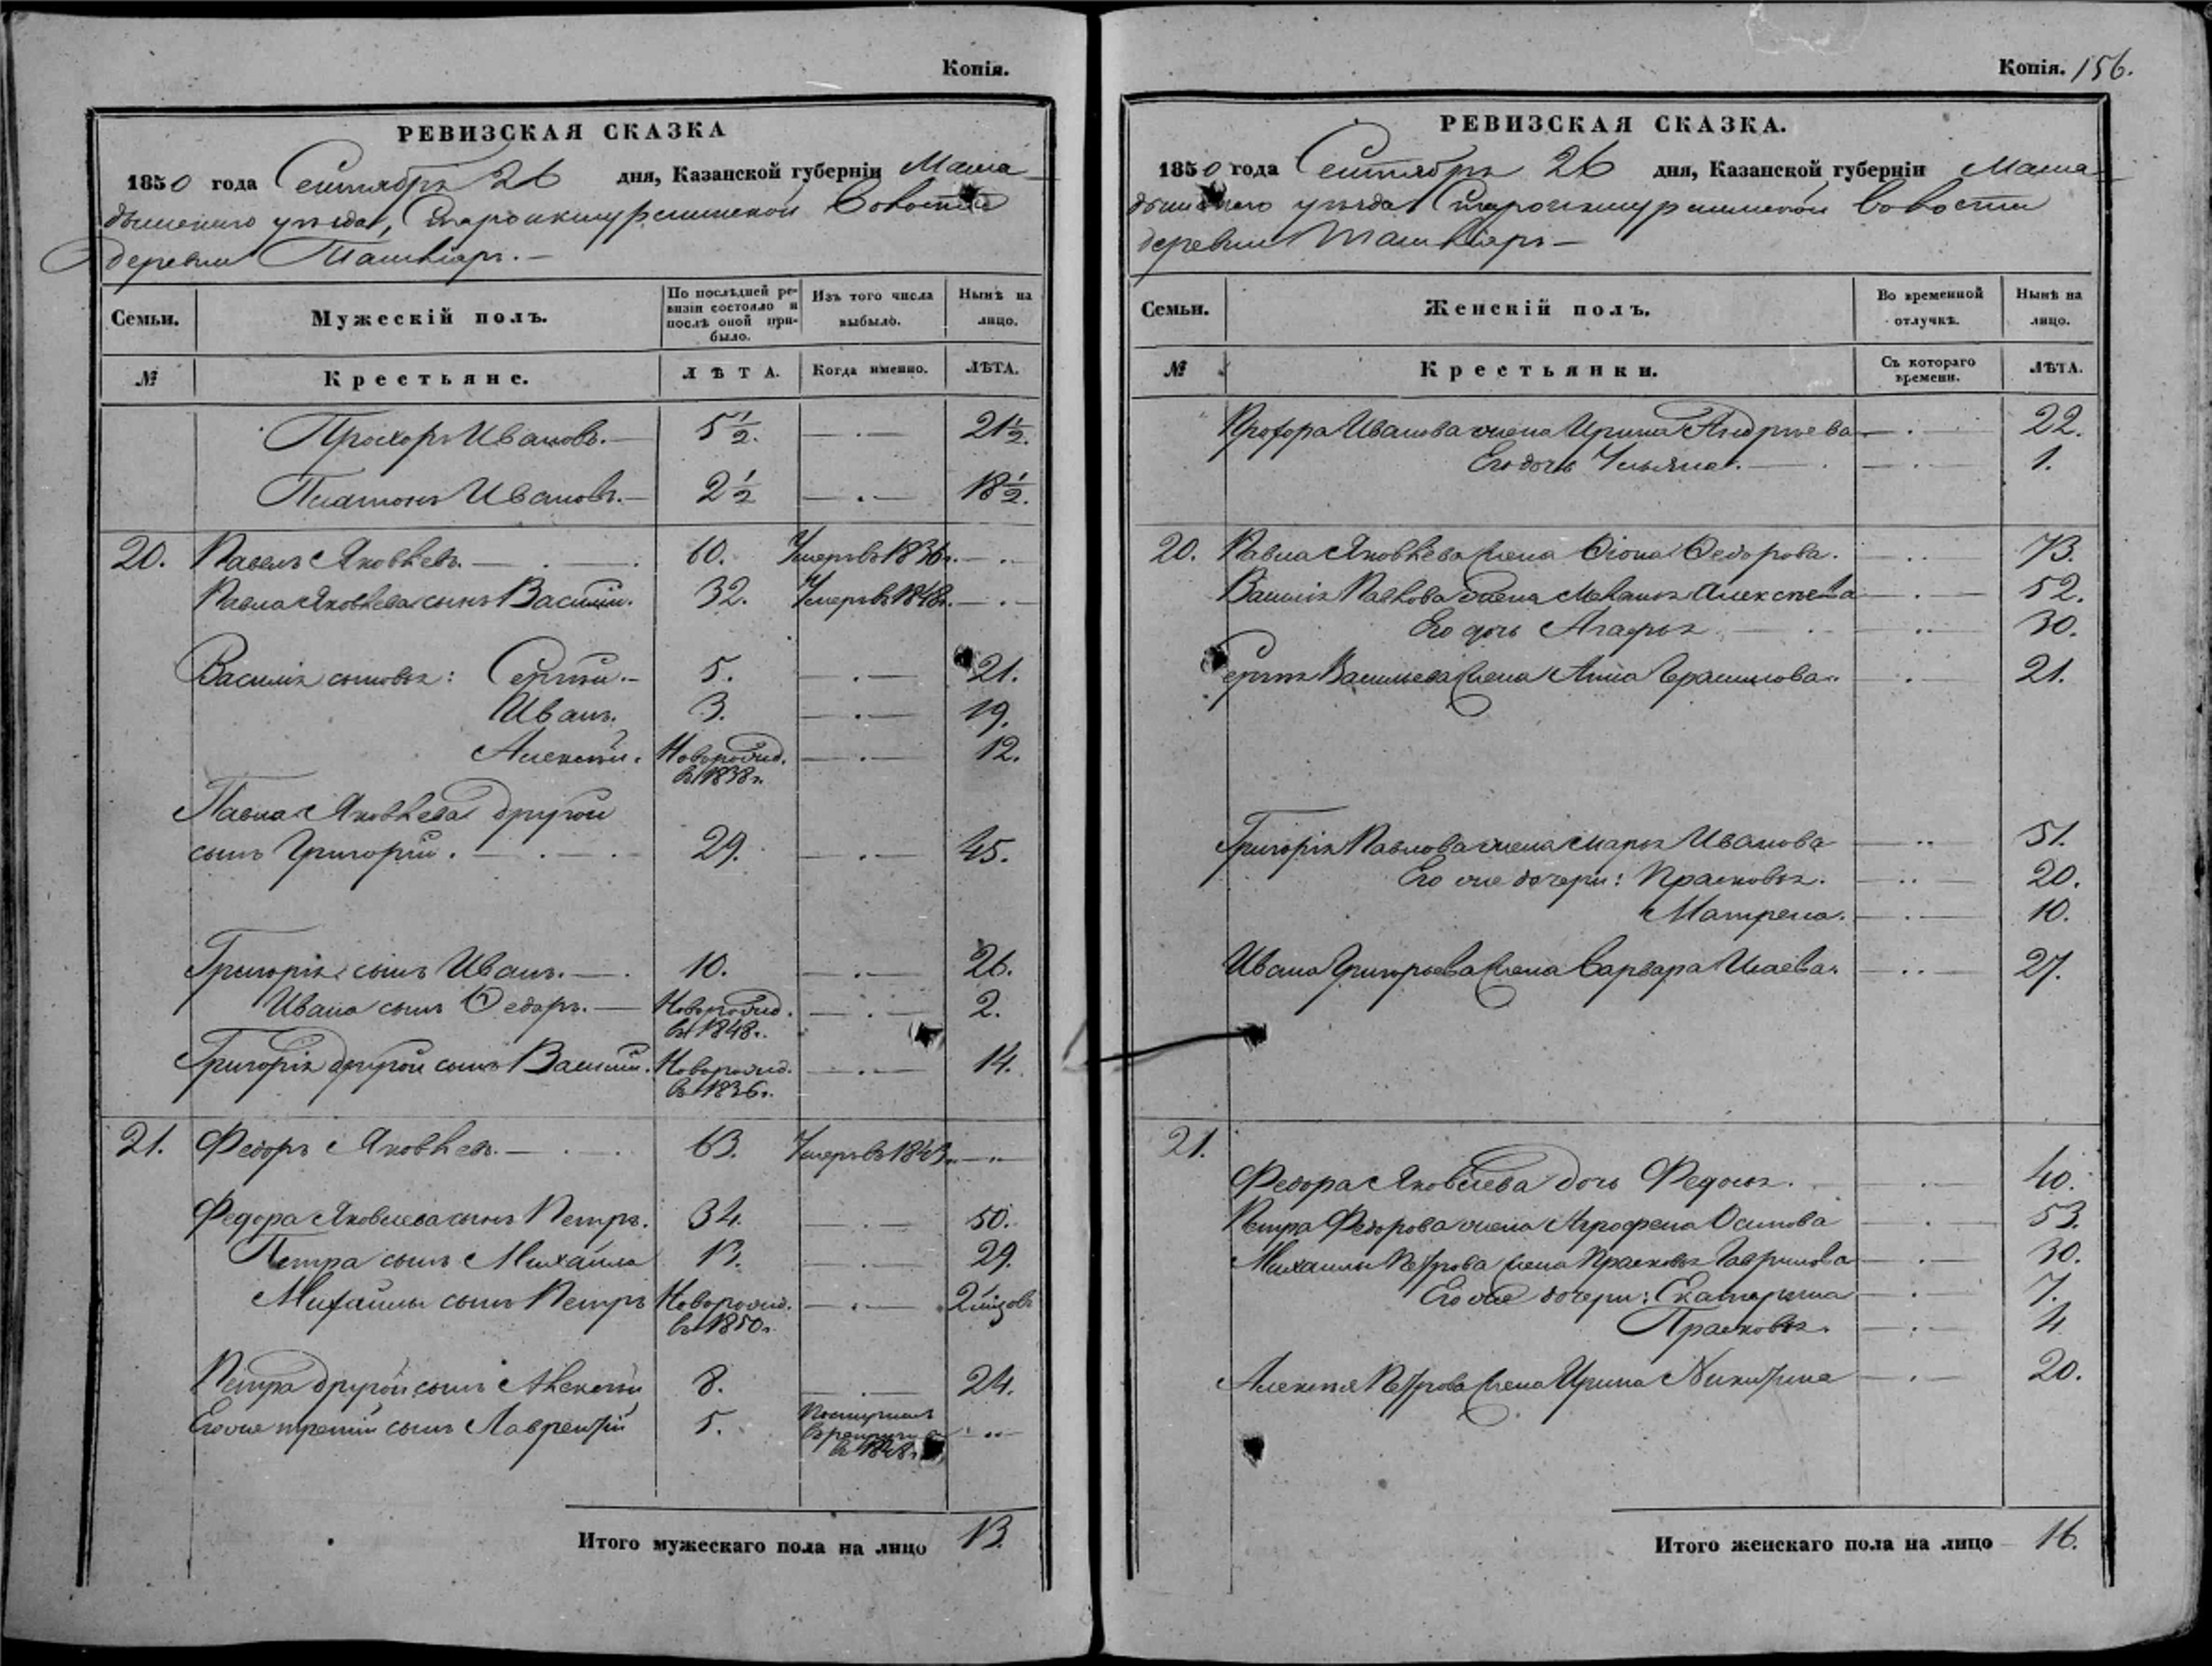 Копія.
РЕВИЗСКАЯ СКАЗКА
1850 года Сентября 26 дня, Казанской губерніи Мама-
дышскаго уѣзда, волости
деревни
Семьи.
Мужескій полъ.
По послѣдней ре-
визіи состояло и
послѣ оной при-
было.
Изъ того числа
выбыло.
Нынѣ на
лицо.
№
Крестьяне.
ЛѢТА.
Когда именно.
ЛѢТА.
Прохоръ Ивановъ. 5 1/2. 21 1/2.
Платонъ Ивановъ. 2 1/2 18 1/2.
20. Павелъ Яковлевъ. 60. Умеръ въ 1836г.
Павла Яковлева сынъ Василій. 32. Умеръ въ 1848г.
Василія сыновья: Сергѣй. 5. 21.
Иванъ. 3. 19.
Алексѣй. Новорожд. 12.
въ 1838г.
Павла Яковлева другой
сынъ Григорій. 29. 45.
Григорія сынъ Иванъ. 10. 26.
Ивана сынъ Ѳедоръ. Новорожд. 2.
въ 1848г.
Григорія другой сынъ Василій. Новорожд. 14.
въ 1836г.
21. Федоръ Яковлевъ. 63. Умеръ въ 1843г.
Федора Яковлева сынъ Петръ. 34. 50.
Петра сынъ Михайла 13. 29.
Михайлы сынъ Петръ Новорожд. 2
въ 1850г.
Петра другой сынъ Алексѣй 8. 24.
Его же третій сынъ Лаврентій 5. Поступилъ
въ рекруты
въ 1848г.
Итого мужескаго пола на лицо 13.
Копія. 156.
РЕВИЗСКАЯ СКАЗКА.
1850 года Сентября 26 дня, Казанской губерніи Мама-
дышскаго уѣзда волости
деревни
Семьи.
Женскій полъ.
Во временной
отлучкѣ.
Нынѣ на
лицо.
№
Крестьянки.
Съ котораго
времени.
ЛѢТА.
Прохора Иванова жена Ирина Андреева 22.
Его дочь Ульяна. 1.
20. Павла Яковлева жена Ѳедорова. 73.
Василія Павлова жена Меланья Алексѣева 52.
Его дочь Агафья 30.
Сергѣя Васильева жена Анна Герасимова. 21.
Григорія Павлова жена Марья Иванова 51.
Его же дочери: Прасковья. 20.
Матрена. 10.
Ивана Григорьева жена Варвара Исаева. 27.
21.
Федора Яковлева дочь Федосья. 40.
Петра Федорова жена Агрофена Осипова 53.
Михайлы Петрова жена Прасковья Гаврилова 30.
Его же дочери: Екатерина 7.
Прасковья. 4
Алексѣя Петрова жена Ирина Никитина 20.
Итого женскаго пола на лицо 16.